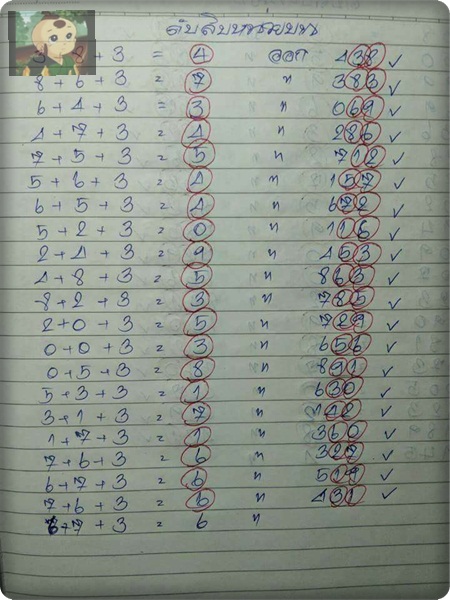 ดับสิบหน่วยบน
3 + 8 + 3 = 4 ออก 438 ✓
8 + 6 + 3 = 7 " 383 ✓
6 + 4 + 3 = 3 " 069 ✓
4 + 7 + 3 = 4 " 286 ✓
7 + 5 + 3 = 5 " 712 ✓
5 + 6 + 3 = 4 " 157 ✓
6 + 5 + 3 = 4 " 672 ✓
5 + 2 + 3 = 0 " 116 ✓
2 + 4 + 3 = 9 " 453 ✓
4 + 8 + 3 = 5 " 863 ✓
8 + 2 + 3 = 3 " 785 ✓
2 + 0 + 3 = 5 " 729 ✓
0 + 0 + 3 = 3 " 656 ✓
0 + 5 + 3 = 8 " 891 ✓
5 + 3 + 3 = 1 " 630 ✓
3 + 1 + 3 = 7 " 142 ✓
1 + 7 + 3 = 1 " 360 ✓
7 + 6 + 3 = 6 " 329 ✓
6 + 7 + 3 = 6 " 519 ✓
7 + 6 + 3 = 6 " 431 ✓
+ 7 + 3 = 6 "